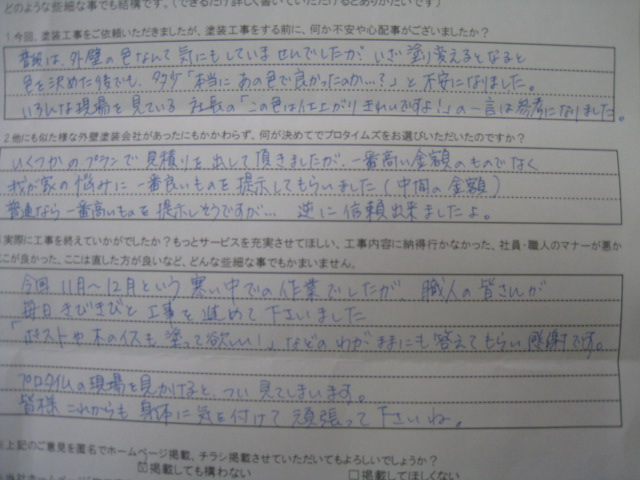 どのような些細な事でも結構です。(できるだけ詳しく書いていただけるとありがたいです)
1 今回、塗装工事をご依頼いただきましたが、塗装工事をする前に、何か不安や心配事がございましたか？
普段は外壁の色なんて気にもしていませんでしたが、いざ塗り替えるとなると
色を決めた後でも、多少「本当にあの色で良かったのか…？」と不安になりました。
いろんな現場を見ている社長の「この色は仕上がりきれいですよ！」の一言は参考になりました。
2 他にも似た様な外壁塗装会社があったにもかかわらず、何が決めてでプロタイムズをお選びいただいたのですか？
いくつかのプランで見積りを出して頂きましたが、一番高い金額のものでなく
我が家の悩みに一番良いものを提示してもらいました(中間の金額)
普通なら一番高いものを提示しそうですが… 逆に信頼出来ましたよ。
実際に工事を終えていかがでしたか？もっとサービスを充実させてほしい、工事内容に納得行かなかった、社員・職人のマナーが悪か
こが良かった、ここは直した方が良いなど、どんな些細な事でもかまいません。
今回11月〜12月という寒い中での作業でしたが 職人の皆さんが
毎日きびきびと工事を進めて下さいました
「ポストや木のイスも塗って欲しい」などのわがままにも答えてもらい感謝です。
プロタイムズの現場を見かけると、つい見てしまいます。
皆様これからも身体に気を付けて頑張って下さいね。
上記のご意見を匿名でホームページ掲載、チラシ掲載させていただいてもよろしいでしょうか？
☑掲載しても構わない
□掲載してほしくない